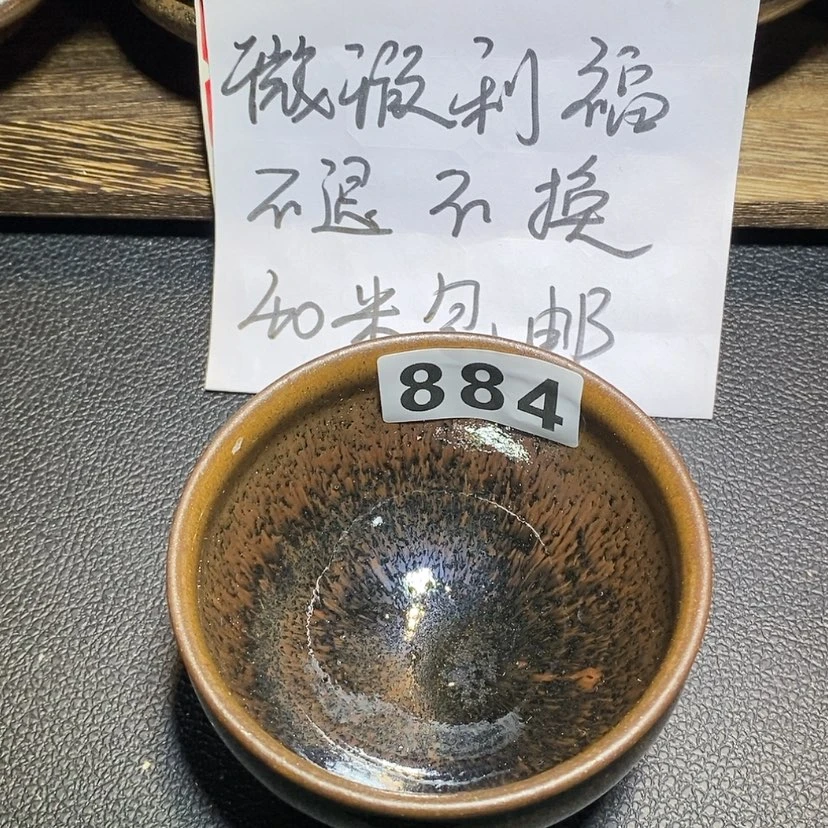 微瑕利福
不退不换
40米包邮
884